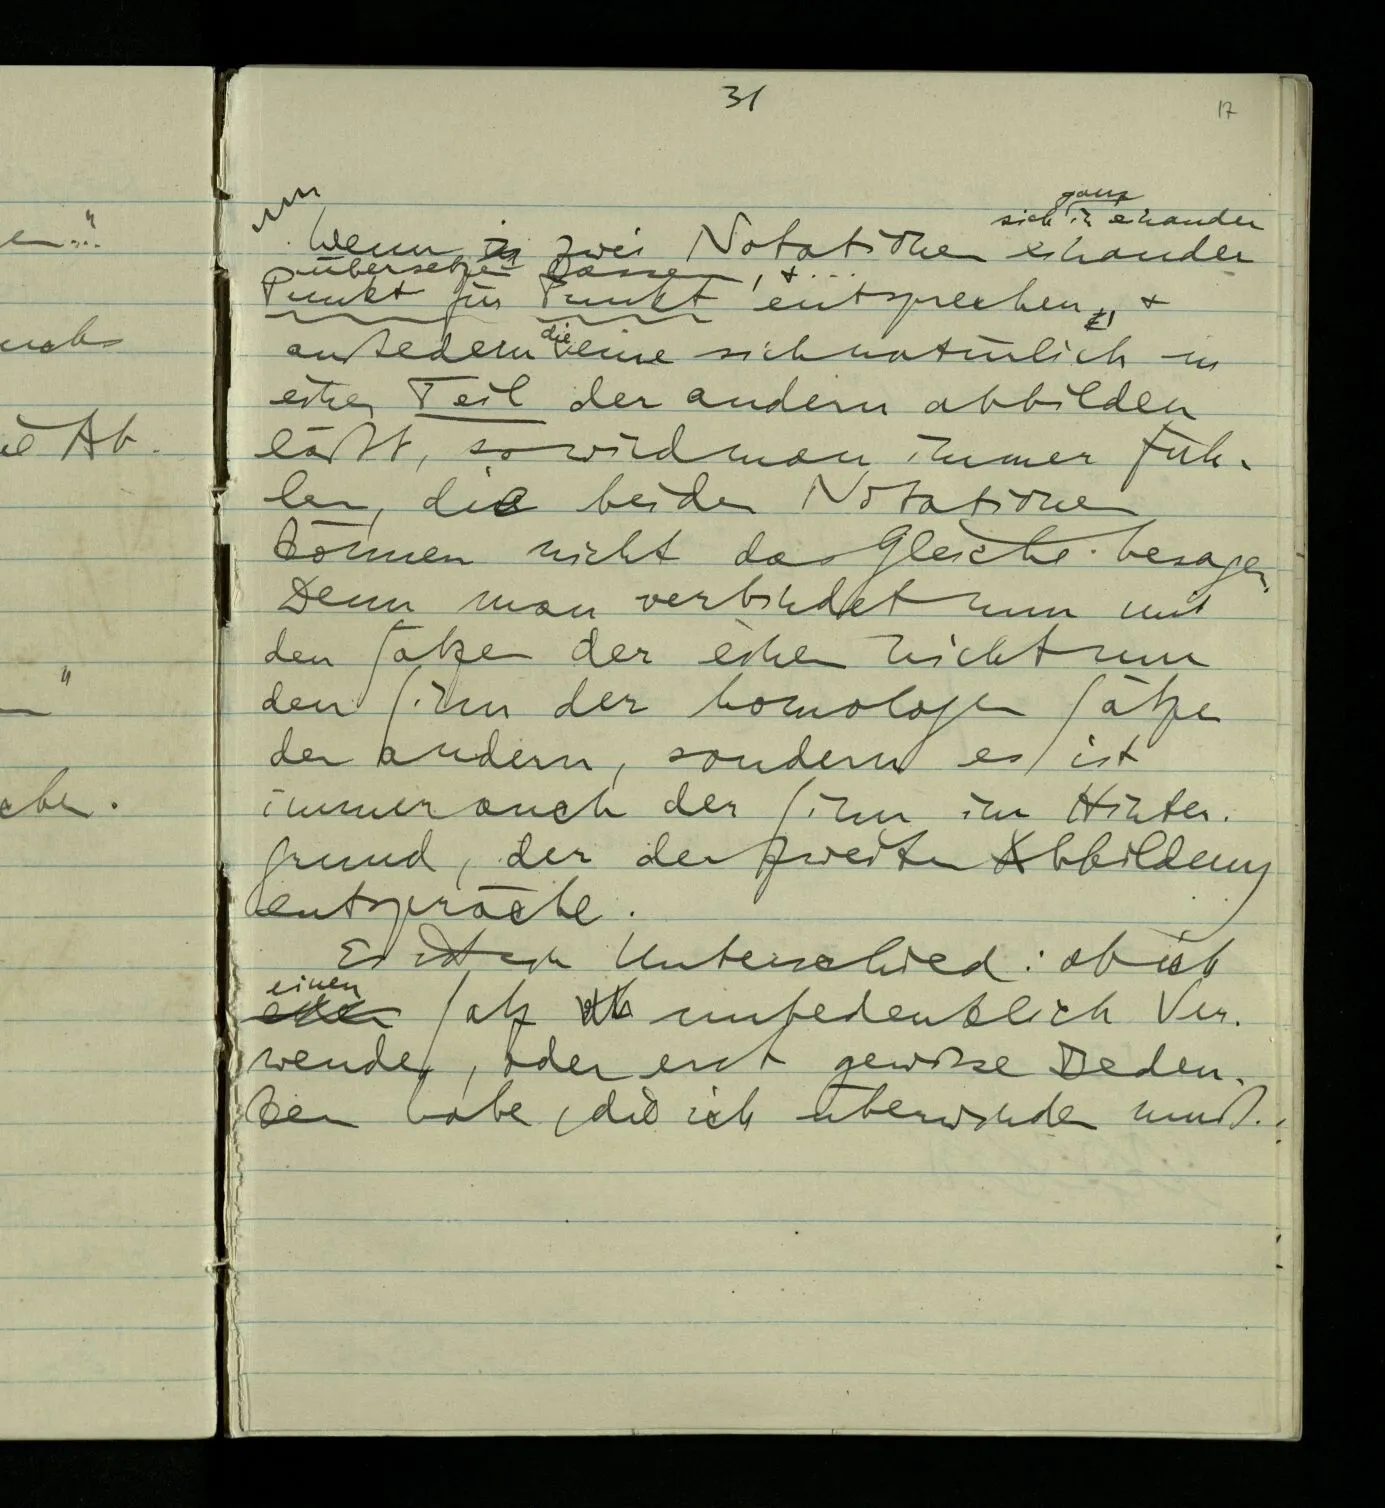 31
17
ganz
sich in einander
Wenn zwei Notationen einander
übersetzen lassen, + ...
Punkt für Punkt entsprechen, +
außedem die eine sich natürlich in
einen Teil der andern abbilden
läßt, so wird man immer füh-
len, die beiden Notationen
können nicht das Gleiche besagen.
Denn man verbindet nun mit
den Sätzen der einen nicht nur
den Sinn der homologen Sätze
der andern, sondern es ist
immer auch der Sinn im Hinter-
grund, der der zweiten Abbildung
entspräche.
Es ist ein Unterschied: ob ich
einen
Satz unbedenklich Ver-
wende, oder erst gewisse Beden-
ken habe, die ich überwinden muß.
e..."
"
che.